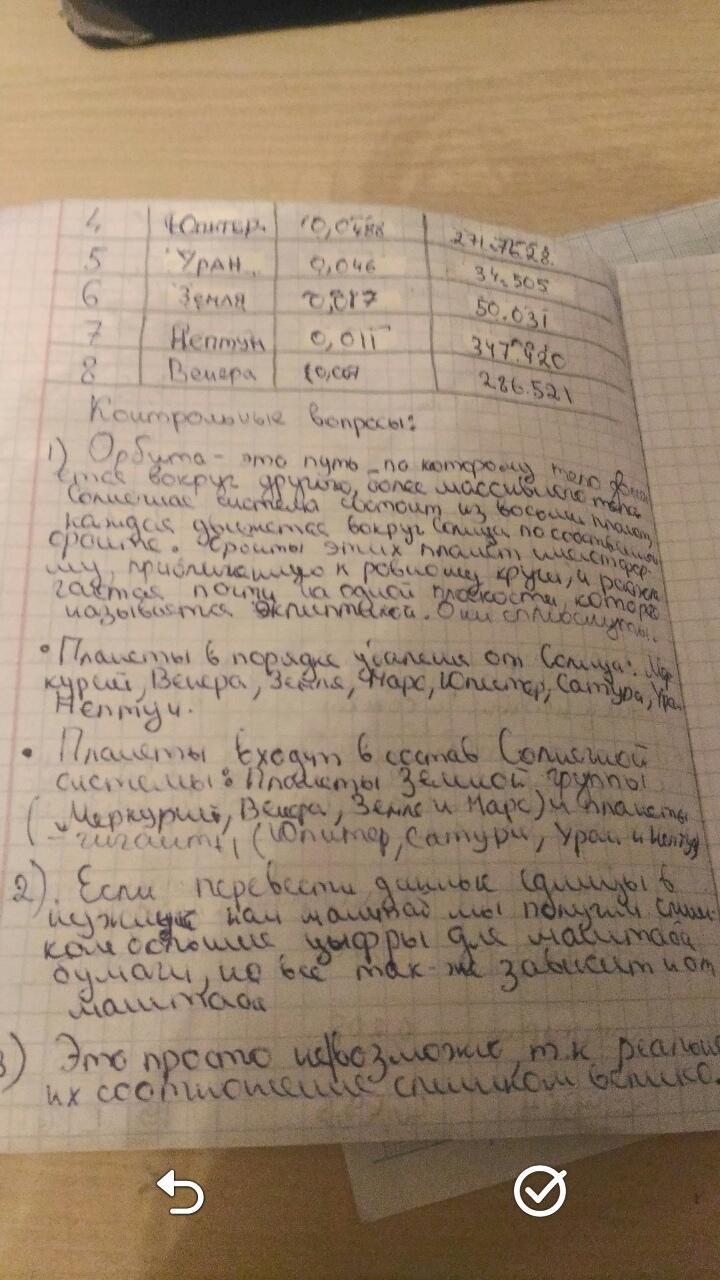 4 Юпитер. 0,0488 271.7628.
5 Уран. 0,046 34.505
6 Земля 0,017 50.031
7 Нептун 0,011 347.420
8 Венера 286.521
Контрольные вопросы:
1) Орбита - это путь по которому тело
ется вокруг другого, более массивного тела
Солнечная система состоит из восьми планет,
каждая движется вокруг Солнца по
орбите. Орбиты этих планет имеют фор-
му, приближенную к ровному кругу, и
гаются почти на одной плоскости, которая
называется эклиптикой. Они сплюснуты.
• Планеты в порядке удаления от Солнца: Мер
курий, Венера, Земля, Марс, Юпитер, Сатурн, Уран
Нептун.
• Планеты входят в состав Солнечной
системы: Планеты Земной группы
(Меркурий, Венера, Земля и Марс) и планеты
- гиганты, (Юпитер, Сатурн, Уран и Нептун)
2). Если перевести данные единицы в
нужные нам мы получим слиш-
ком большие цыфры для масштаба
бумаги, но все так-же зависит и от
маштаба
3) Это просто невозможно т.к реальные
их соотношение слишком велико.